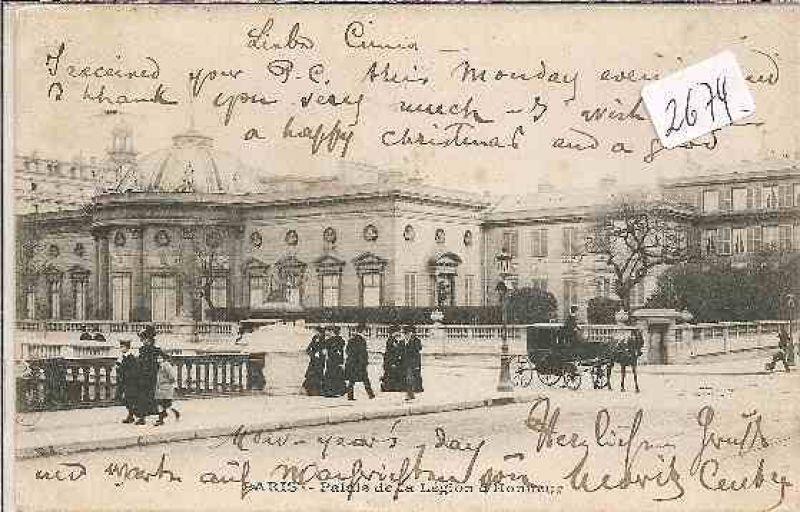 I received your P.C. this Monday and
I thank you very much - I wish
a happy Christmas and a good
2674
New-year's day Herzlichen Gruß
und warte auf Nachrichten von Moritz
PARIS - Palais de la Légion d'Honneur